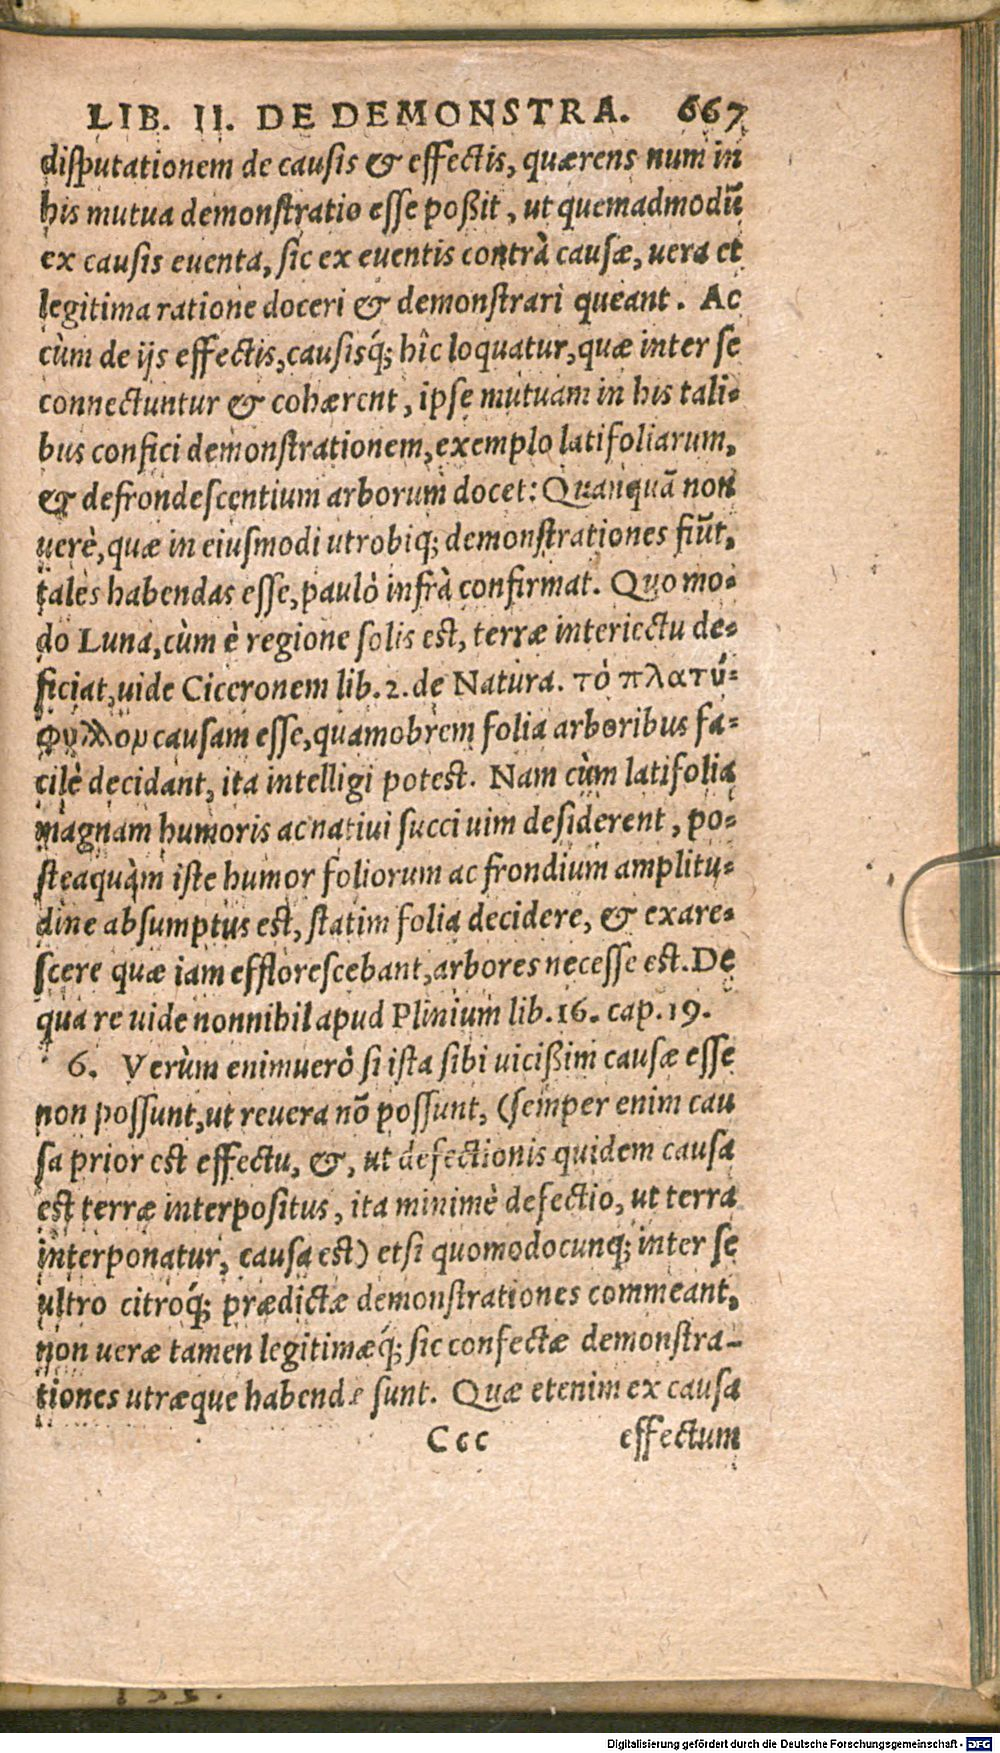 LIB. II. DE DEMONSTRA. 667
disputationem de causis & effectis, quærens num in
his mutua demonstratio esse poßit, ut quemadmodū
ex causis euenta, sic ex euentis contrà causæ, uera et
legitima ratione doceri & demonstrari queant. Ac
cùm de ijs effectis, causisq́; hîc loquatur, quæ inter se
connectuntur & cohærent, ipse mutuam in his tali-
bus confici demonstrationem, exemplo latifoliarum,
& defrondescentium arborum docet: Quanquā non
uerè, quæ in eiusmodi utrobiq; demonstrationes fiūt,
tales habendas esse, paulò infrà confirmat. Quo mo-
do Luna, cùm è regione solis est, terræ interiectu de-
ficiat, uide Ciceronem lib. 2. de Natura. τὸ πλατύ-
φυλλον causam esse, quamobrem folia arboribus fa-
cilè decidant, ita intelligi potest. Nam cùm latifolia
magnam humoris ac natiui succi uim desiderent, po-
steaquàm iste humor foliorum ac frondium amplitu-
dine absumptus est, statim folia decidere, & exare-
scere quæ iam efflorescebant, arbores necesse est. De
qua re uide nonnihil apud Plinium lib. 16. cap. 19.
6. Verùm enimuerò si ista sibi uicißim causæ esse
non possunt, ut reuera nō possunt, (semper enim cau
sa prior est effectu, &, ut defectionis quidem causa
est terræ interpositus, ita minimè defectio, ut terra
interponatur, causa est) etsi quomodocunq; inter se
ultro citroq́; prædictæ demonstrationes commeant,
non ueræ tamen legitimæq́; sic confectæ demonstra-
tiones utræque habendæ sunt. Quæ etenim ex causa
Ccc effectum
Digitalisierung gefördert durch die Deutsche Forschungsgemeinschaft - DFG